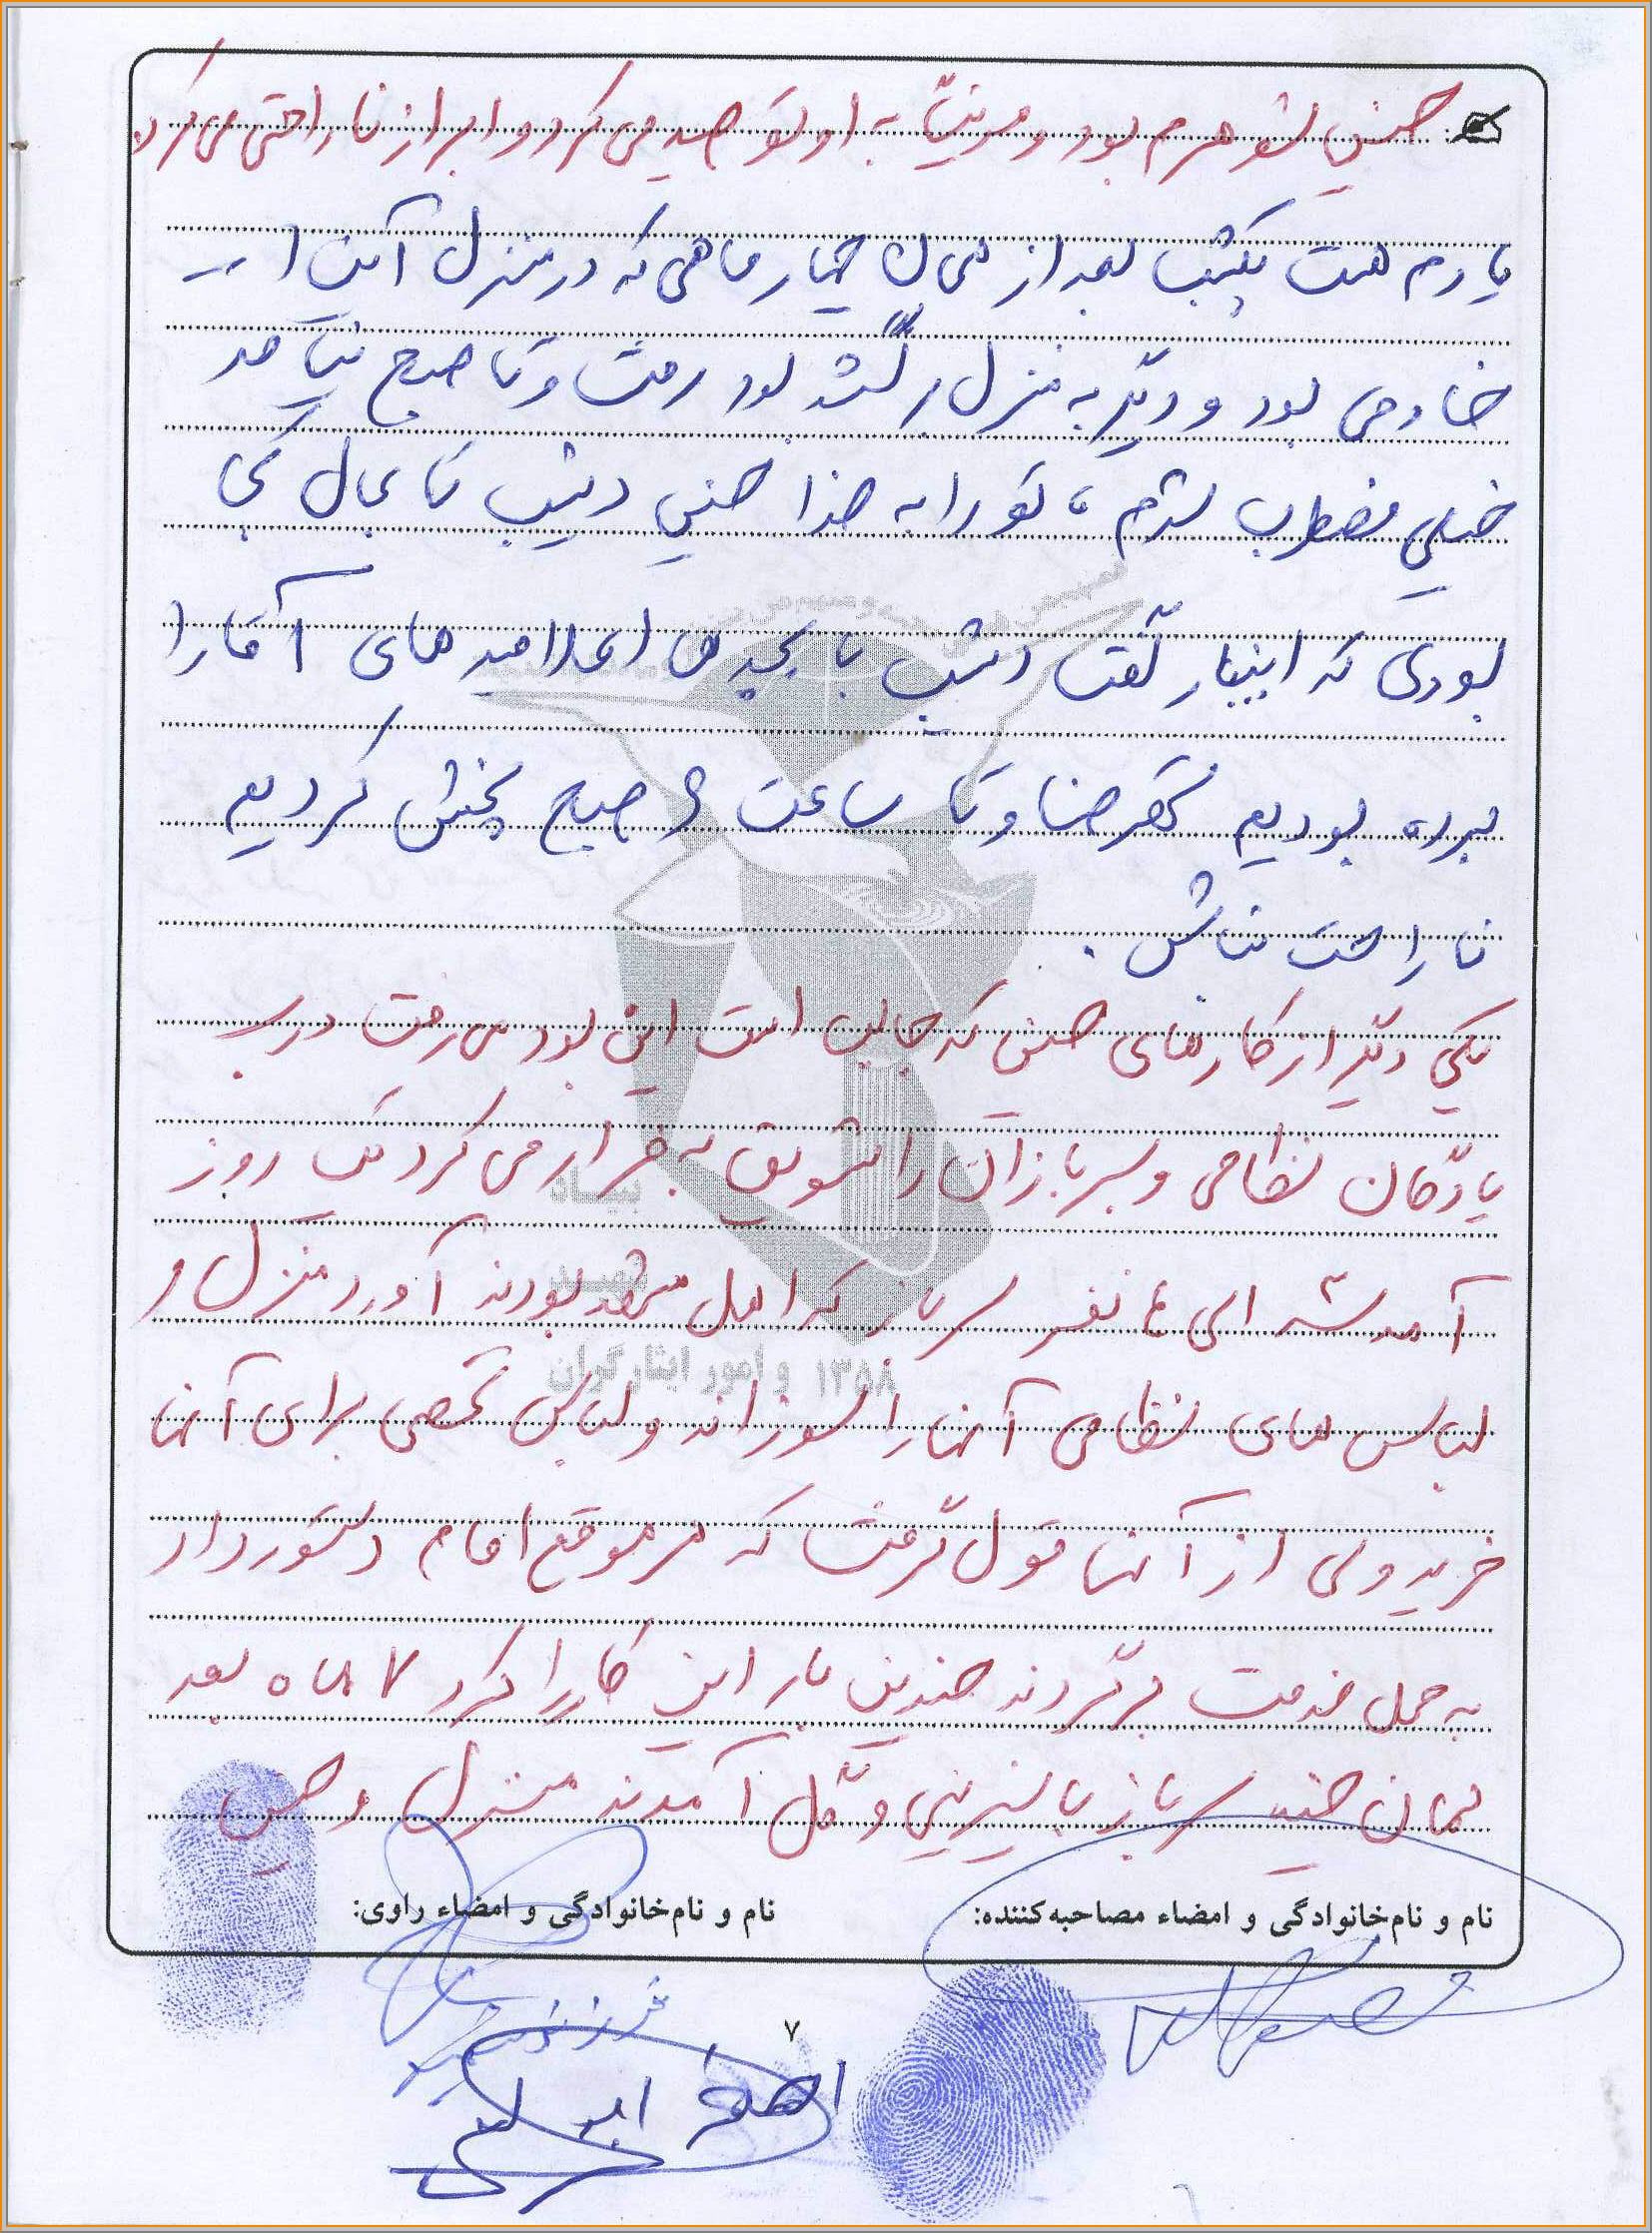 حسنی شوهرم بود و مرتباً به او توصیه می کرد و ابراز ناراحتی می کرد.
یادم هست یکشب بعد از همان چهار ماهی که در منزل آیت ا...
خادمی بود و دیگر به منزل برگشته بود رفت و تا صبح نیامد
خیلی مضطرب شدم ، تو را به خدا حسنی دیشب تا بحال کجا
بودی که اینبار گفت دیشب با بچه ها اعلامیه های آقا را
برده بودیم و تا ساعت 6 صبح پخش کردیم
ناراحت نباش .
یکی دیگر از کارهای حسن که جالب است این بود می رفت درب
پادگان نظامی و سربازان را تشویق به فرار می کرد یک روز
آمد نفر سرباز که اهل مشهد بودند آورد منزل و
لباس های نظامی آنها را سوزاند و لباس شخصی برای آنها
خرید ولی از آنها قول گرفت که هر موقع امام دستور داد
به محل خدمت برگردند چندین بار این کار را کرد ۷ ماه بعد
همان چند سرباز با شیرینی و گل آمدند منزل و حسن
نام و نام‌خانوادگی و امضاء مصاحبه‌کننده:
نام و نام‌خانوادگی و امضاء راوی:
۷
بنیاد
شهید
۱۳۵۸ و امور ایثارگران